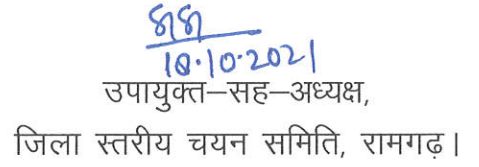 18.10.2021
उपायुक्त–सह–अध्यक्ष,
जिला स्तरीय चयन समिति, रामगढ़।